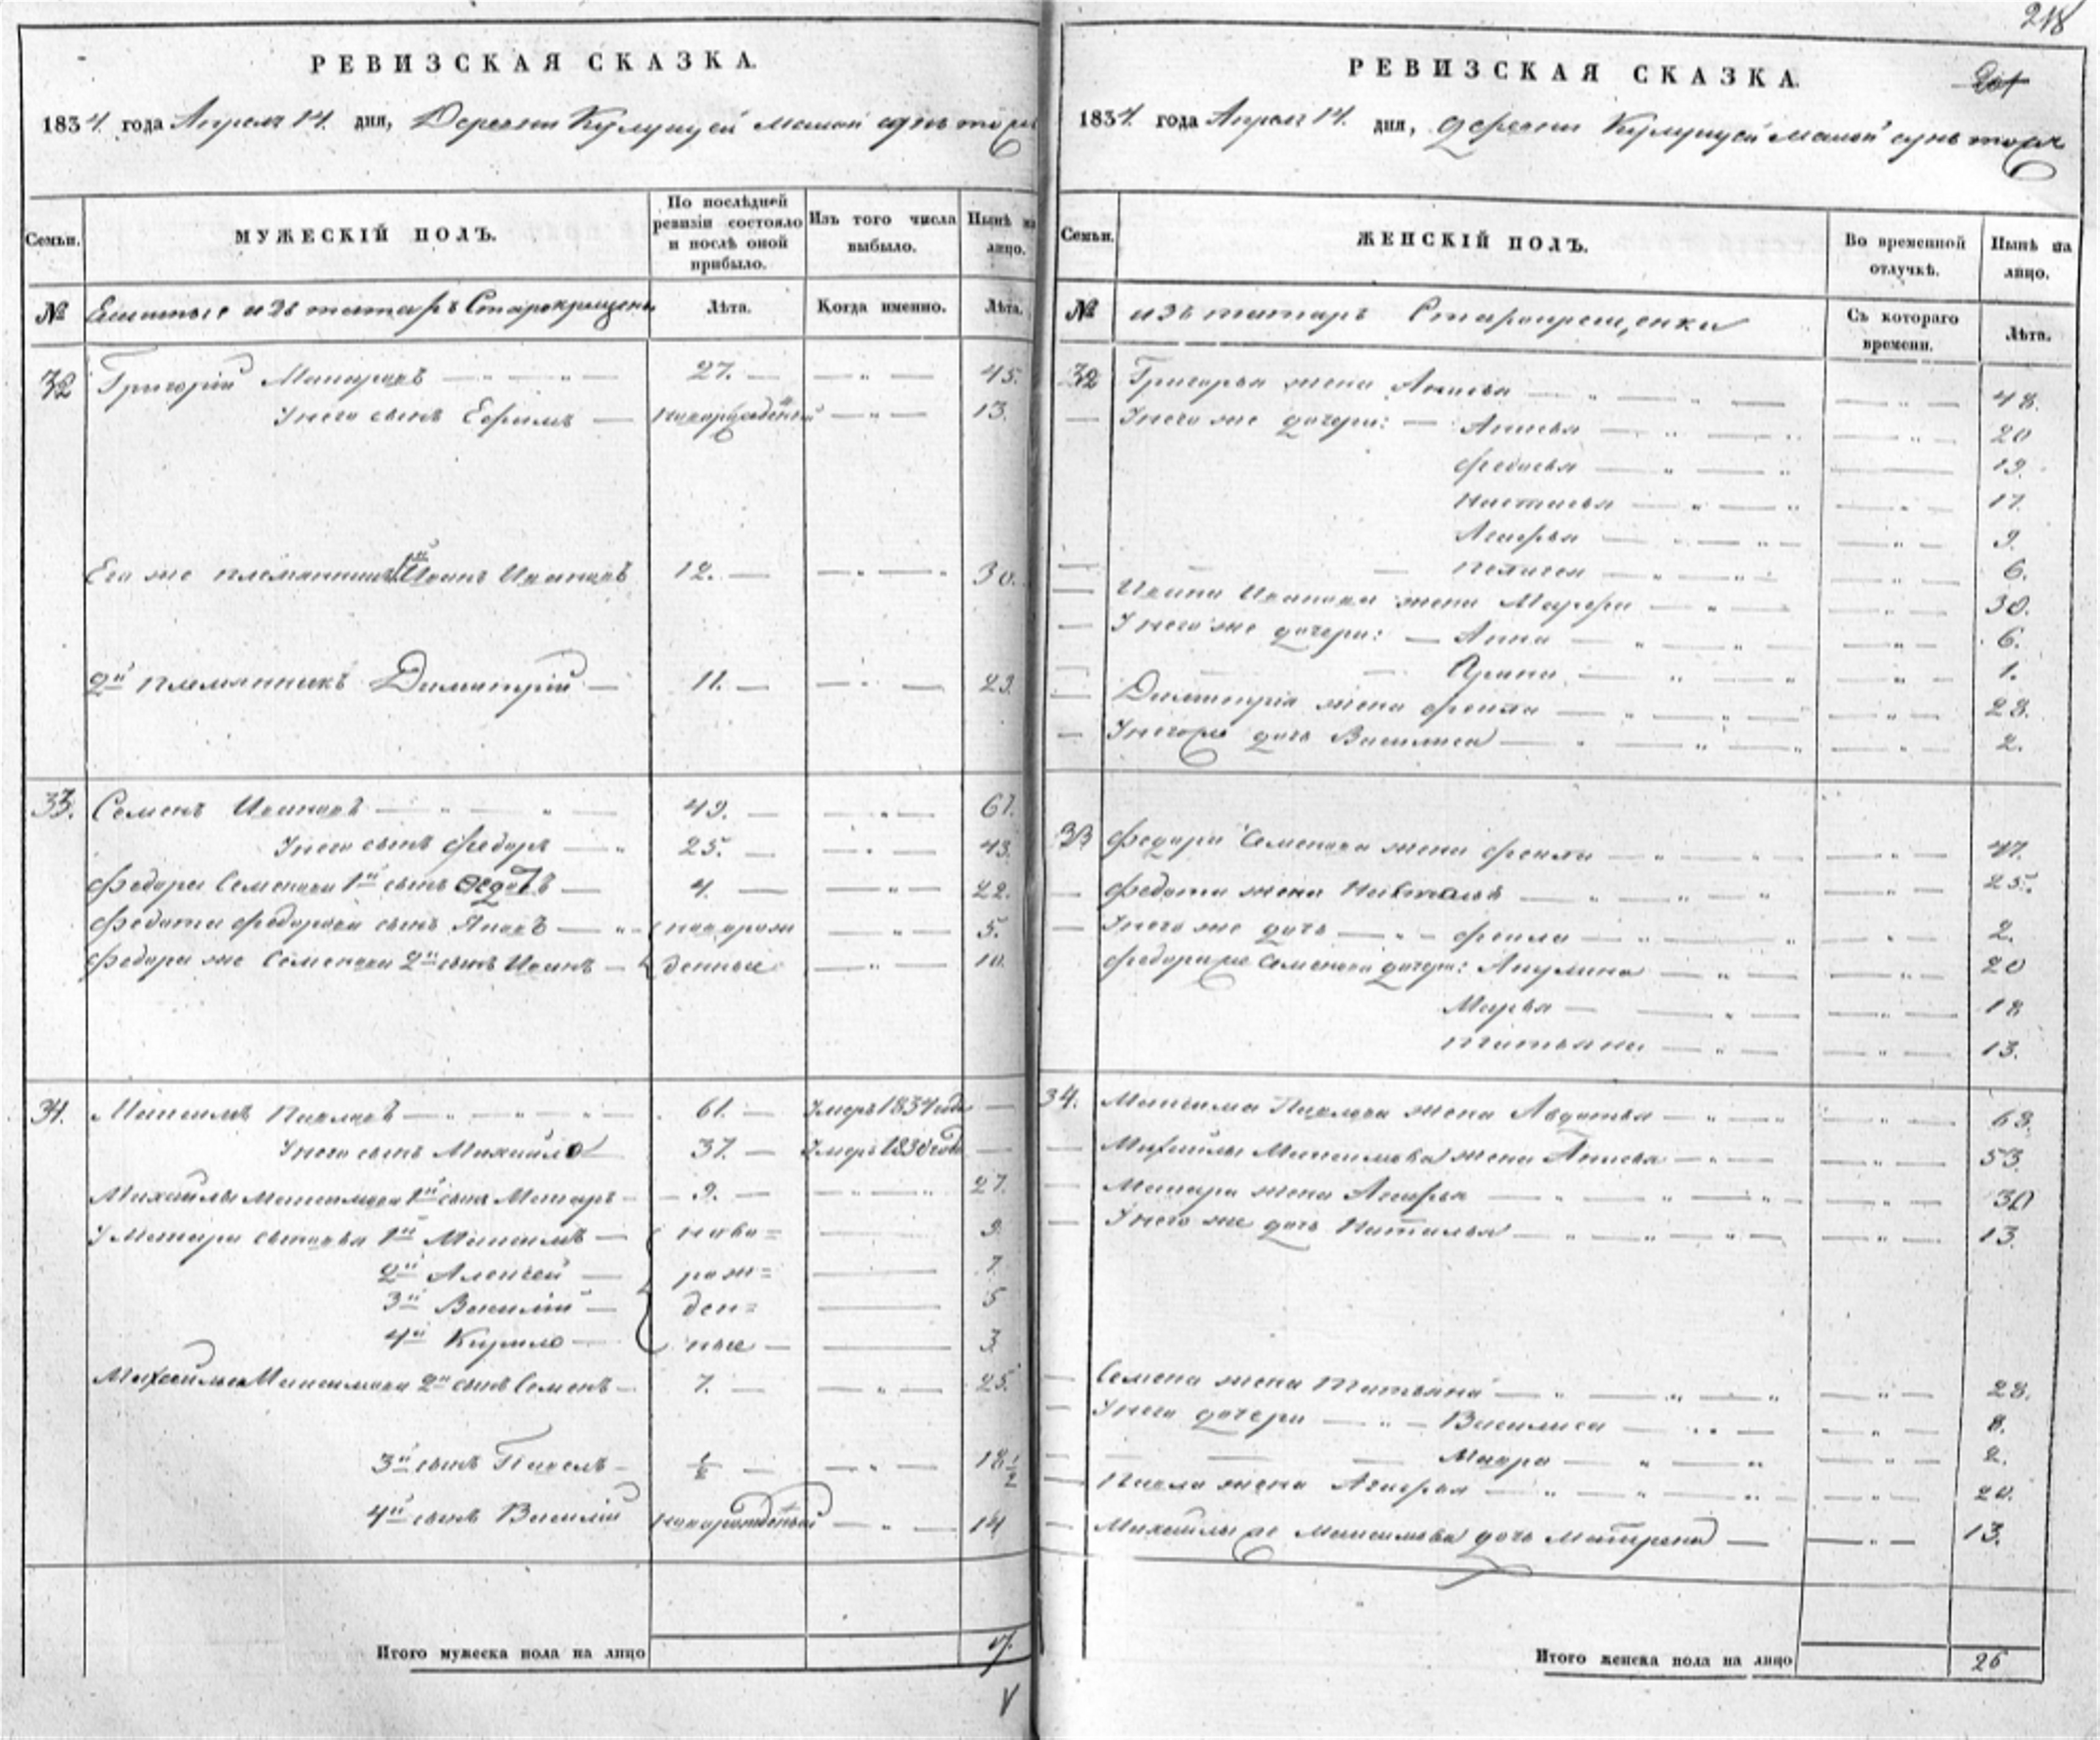 РЕВИЗСКАЯ СКАЗКА.
1834. года Апреля 14. дня, Деревни
Семьи.
МУЖЕСКІЙ ПОЛЪ.
По послѣдней ревизіи состояло и послѣ оной прибыло.
Изъ того числа выбыло.
Нынѣ на лицо.
№
изъ татаръ
Лѣта.
Когда именно.
Лѣта.
32 Григорій 27. 45.
У него сынъ Ефримъ новорожденный 13.
Его же племянникъ 1й Иванъ Ивановъ 12. 30.
2й племянникъ Димитрій 11. 23.
33. Семенъ Ивановъ 49. 67.
У него сынъ Федоръ 25. 43.
Федора Семенова 1й сынъ Федотъ 4. 22.
Федота Федорова сынъ Яковъ новорож 5.
Федора же Семенова 2й сынъ Иванъ денные 10.
34. Максимъ Павловъ 61. Умеръ 1834 года
У него сынъ Михайло 37. Умеръ 1830 года
Михайлы Максимова 1й сынъ Макаръ 9. 27.
У Макара сыновья 1й Максимъ ново= 9.
2й Алексей рож= 7.
3й Василий ден= 5
4й Кирило ные 3
Михайлы Максимова 2й сынъ Семенъ 7. 25.
3й сынъ Павелъ ½ 18½
4й сынъ Василій новорожденный 14
Итого мужеска пола на лицо 17.
218
РЕВИЗСКАЯ СКАЗКА.
1834. года Апреля 14. дня, деревни
Семьи.
ЖЕНСКІЙ ПОЛЪ.
Во временной отлучкѣ.
Нынѣ на лицо.
№
изъ татаръ Старокрещенки
Съ котораго времени.
Лѣта.
32 Григорья жена Анисья 48.
У него же дочери: Анисья 20
Федосья 19.
Настасья 17.
Агафья 9.
Пелагея 6.
Ивана Иванова жена Марфа 30.
У него же дочери: Анна 6.
Арина 1.
Димитрія жена Фекла 28.
У него же дочь Василиса 2.
33 Федора Семенова жена Фекла 47.
Федота жена Наталья 25.
У него же дочь Фекла 2.
Федора же Семенова дочери: Акулина 20
Марья 18
Татьяна 13.
34. Максима Павлова жена Авдотья 63.
Михайлы Максимова жена Анисья 53.
Макара жена Агафья 30
У него же дочь Наталья 13.
Семена жена Татьяна 28.
У него дочери Василиса 8.
Мавра 2.
Павла жена Агафья 20.
Михайлы же Максимова дочь Матрена 13.
Итого женска пола на лицо 26